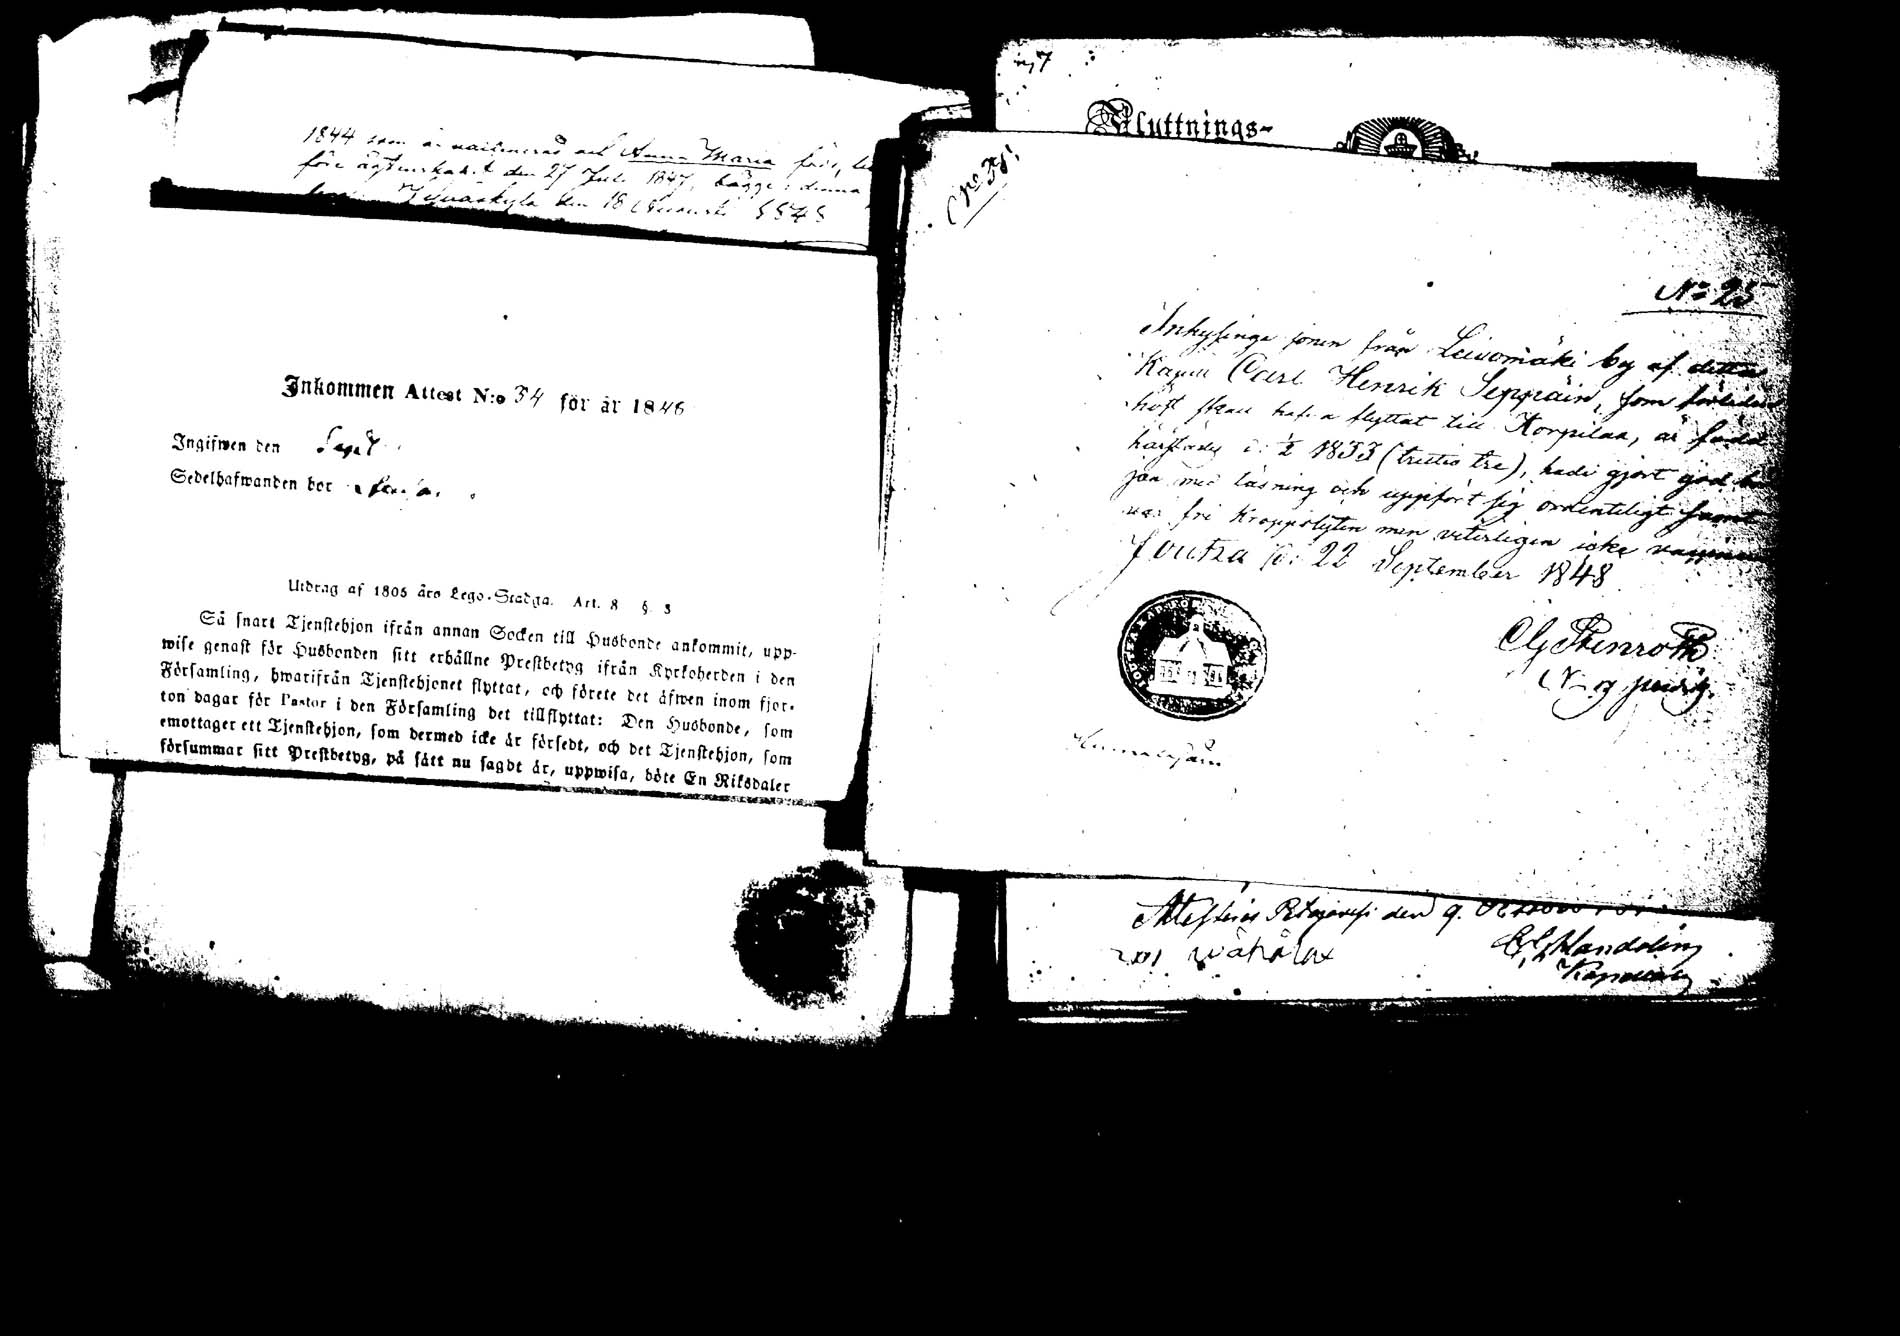 1844 som är vaccinerad och Anna Maria född
före ägtenskapet den 27 Juli 1847, bägge i denna
Jyväskylä den 18 Augusti 1848
Inkommen Attest N:o 34 för år 1848
Ingifwen den Sept
Sedelhafwanden bor
Utdrag af 1805 års Lego-Stadga. Art. 8 §. 3
Så snart Tjenstehjon ifrån annan Socken till Husbonde ankommit, upp-
wise genast för Husbonden sitt erhållne Prestbetyg ifrån Kyrkoherden i den
Församling, hwarifrån Tjenstehjonet flyttat, och förete det äfwen inom fjor-
ton dagar för Pastor i den Församling det tillflyttat: Den Husbonde, som
emottager ett Tjenstehjon, som dermed icke är försedt, och det Tjenstehjon, som
försummar sitt Prestbetyg, på sätt nu sagdt är, uppwisa, böte En Riksdaler
Flyttnings-
No 38!
No 25
Inhysinge sonen från Leivomäki by af detta
Kapell Carl Henrik Seppäin, som förledne
höst skall hafva flyttat till Korpilax, är född
härstädes d: 1/2 1833 (trettio tre), hade gjort god bör
jan med läsning och uppfört sig ordentligt samt
var fri kroppslyten men veterligen icke vaccinerad
Joutza d: 22 September 1848
Stenroth
Attesteras Petäjävesi den 9.
Kapellan